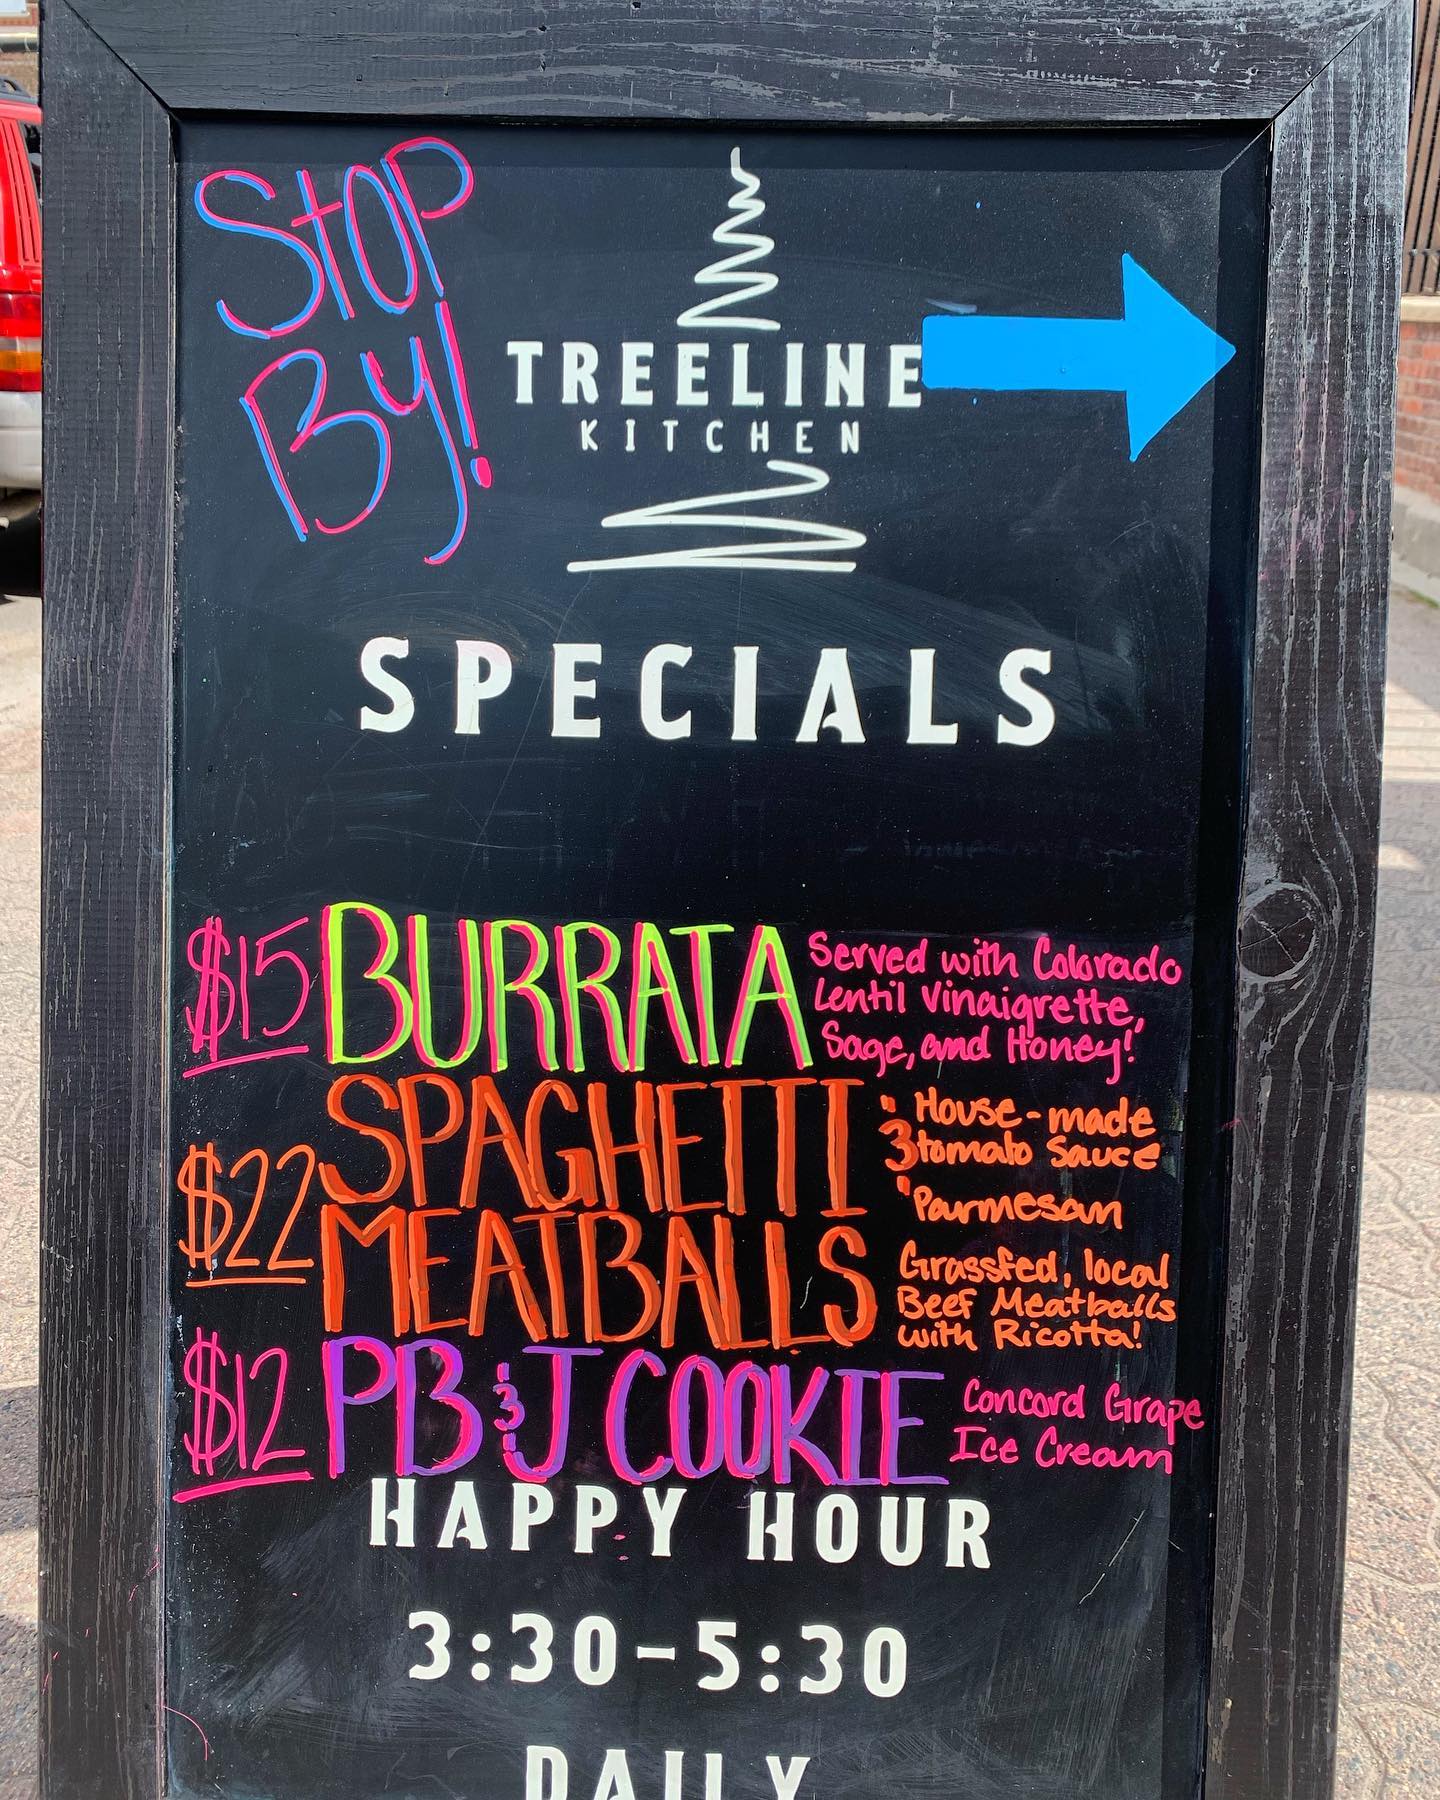 Stop
By!
TREELINE
KITCHEN
SPECIALS
$15 BURRATA
Served with Colorado
Lentil Vinaigrette,
Sage, and Honey!
$22 SPAGHETTI
& MEATBALLS
House-made
tomato Sauce
Parmesan
Grassfed, local
Beef Meatballs
with Ricotta!
$12 PB & J COOKIE
Concord Grape
Ice Cream
HAPPY HOUR
3:30-5:30
DAILY